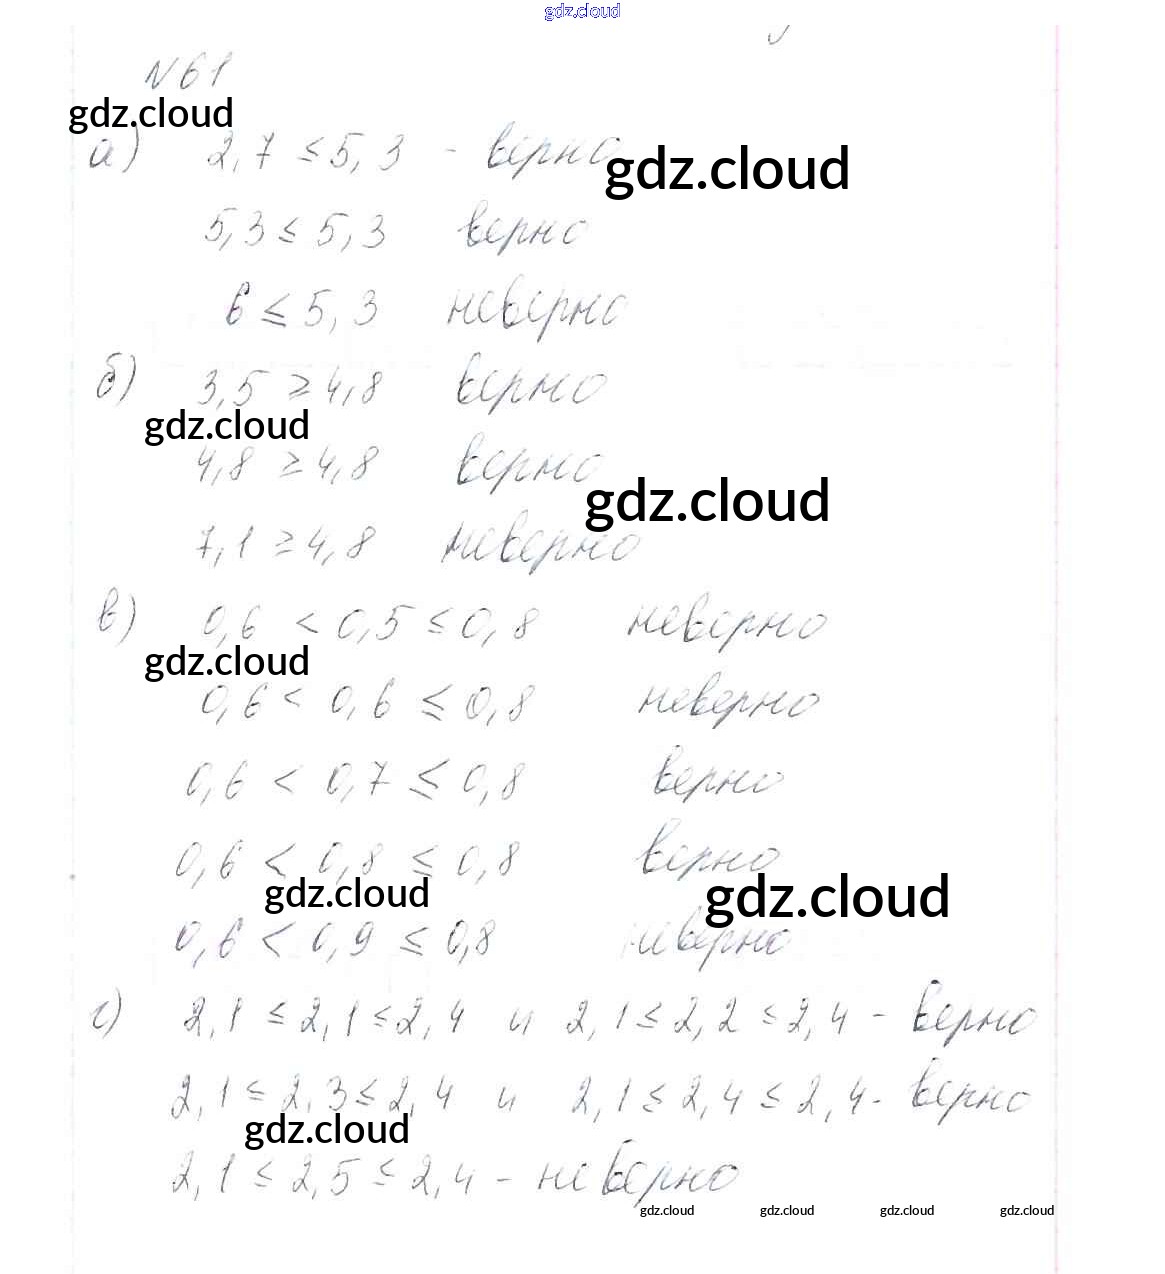 gdz.cloud
N 61
gdz.cloud
а) 2,7 ≤ 5,3 - верно
gdz.cloud
5,3 ≤ 5,3 верно
6 ≤ 5,3 неверно
б) 3,5 ≥ 4,8 верно
gdz.cloud
4,8 ≥ 4,8 верно
gdz.cloud
7,1 ≥ 4,8 неверно
в) 0,6 < 0,5 ≤ 0,8 неверно
gdz.cloud
0,6 < 0,6 ≤ 0,8 неверно
0,6 < 0,7 ≤ 0,8 верно
0,6 < 0,8 ≤ 0,8 верно
gdz.cloud gdz.cloud
0,6 < 0,9 ≤ 0,8 неверно
г) 2,1 ≤ 2,1 ≤ 2,4 и 2,1 ≤ 2,2 ≤ 2,4 - верно
2,1 ≤ 2,3 ≤ 2,4 и 2,1 ≤ 2,4 ≤ 2,4 - верно
gdz.cloud
2,1 ≤ 2,5 ≤ 2,4 - неверно
gdz.cloud gdz.cloud gdz.cloud gdz.cloud